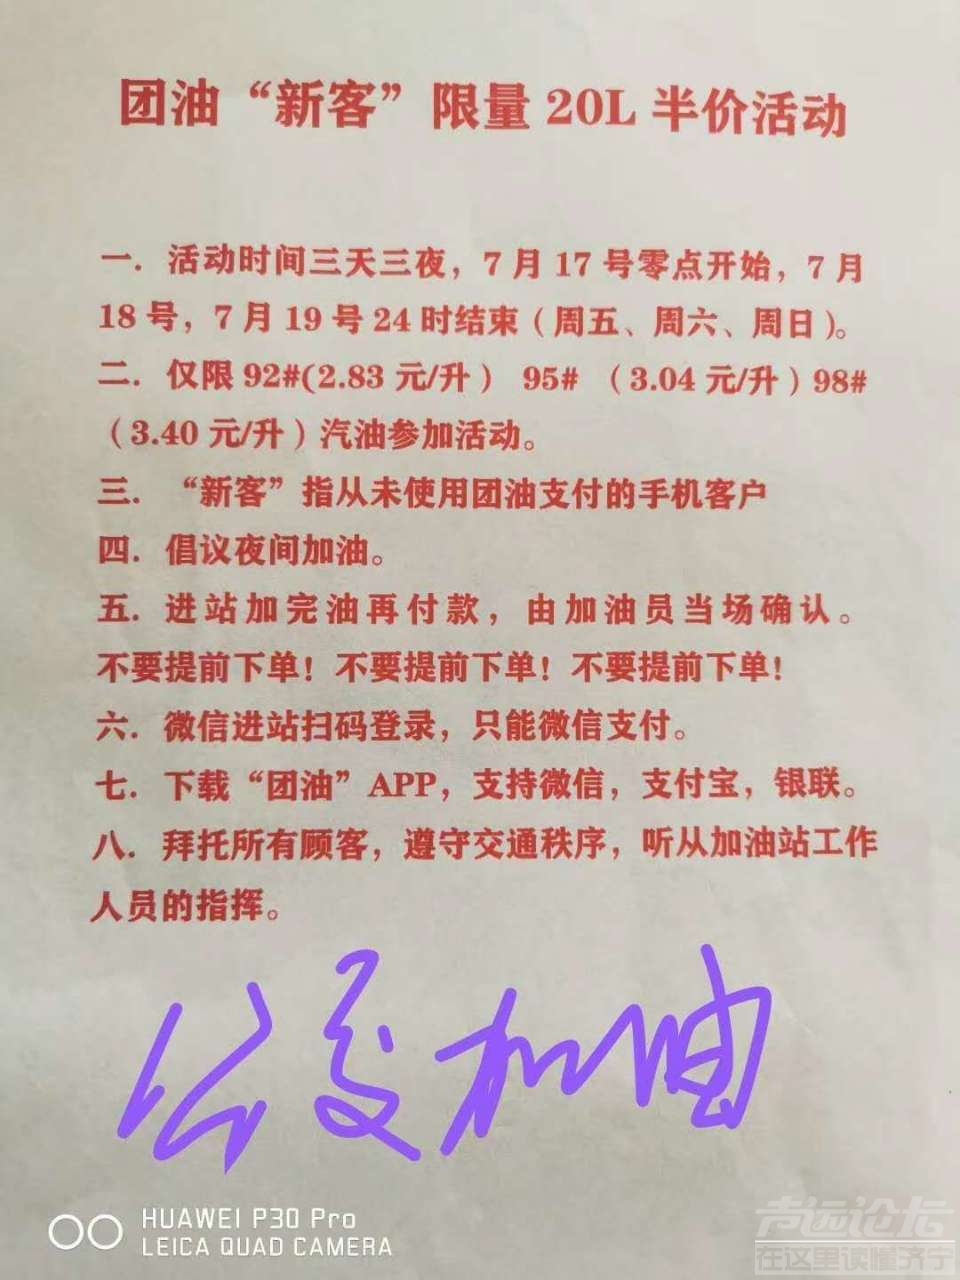 团油“新客”限量 20L 半价活动
一．活动时间三天三夜，7 月 17 号零点开始，7 月
18 号，7 月 19 号 24 时结束（周五、周六、周日）。
二．仅限 92#(2.83 元/升） 95# （3.04 元/升）98#
（3.40 元/升）汽油参加活动。
三．“新客”指从未使用团油支付的手机客户
四．倡议夜间加油。
五．进站加完油再付款，由加油员当场确认。
不要提前下单！不要提前下单！不要提前下单！
六．微信进站扫码登录，只能微信支付。
七．下载“团油”APP，支持微信，支付宝，银联。
八．拜托所有顾客，遵守交通秩序，听从加油站工作
人员的指挥。
公交加油
HUAWEI P30 Pro
LEICA QUAD CAMERA
声远论坛
在这里读懂济宁